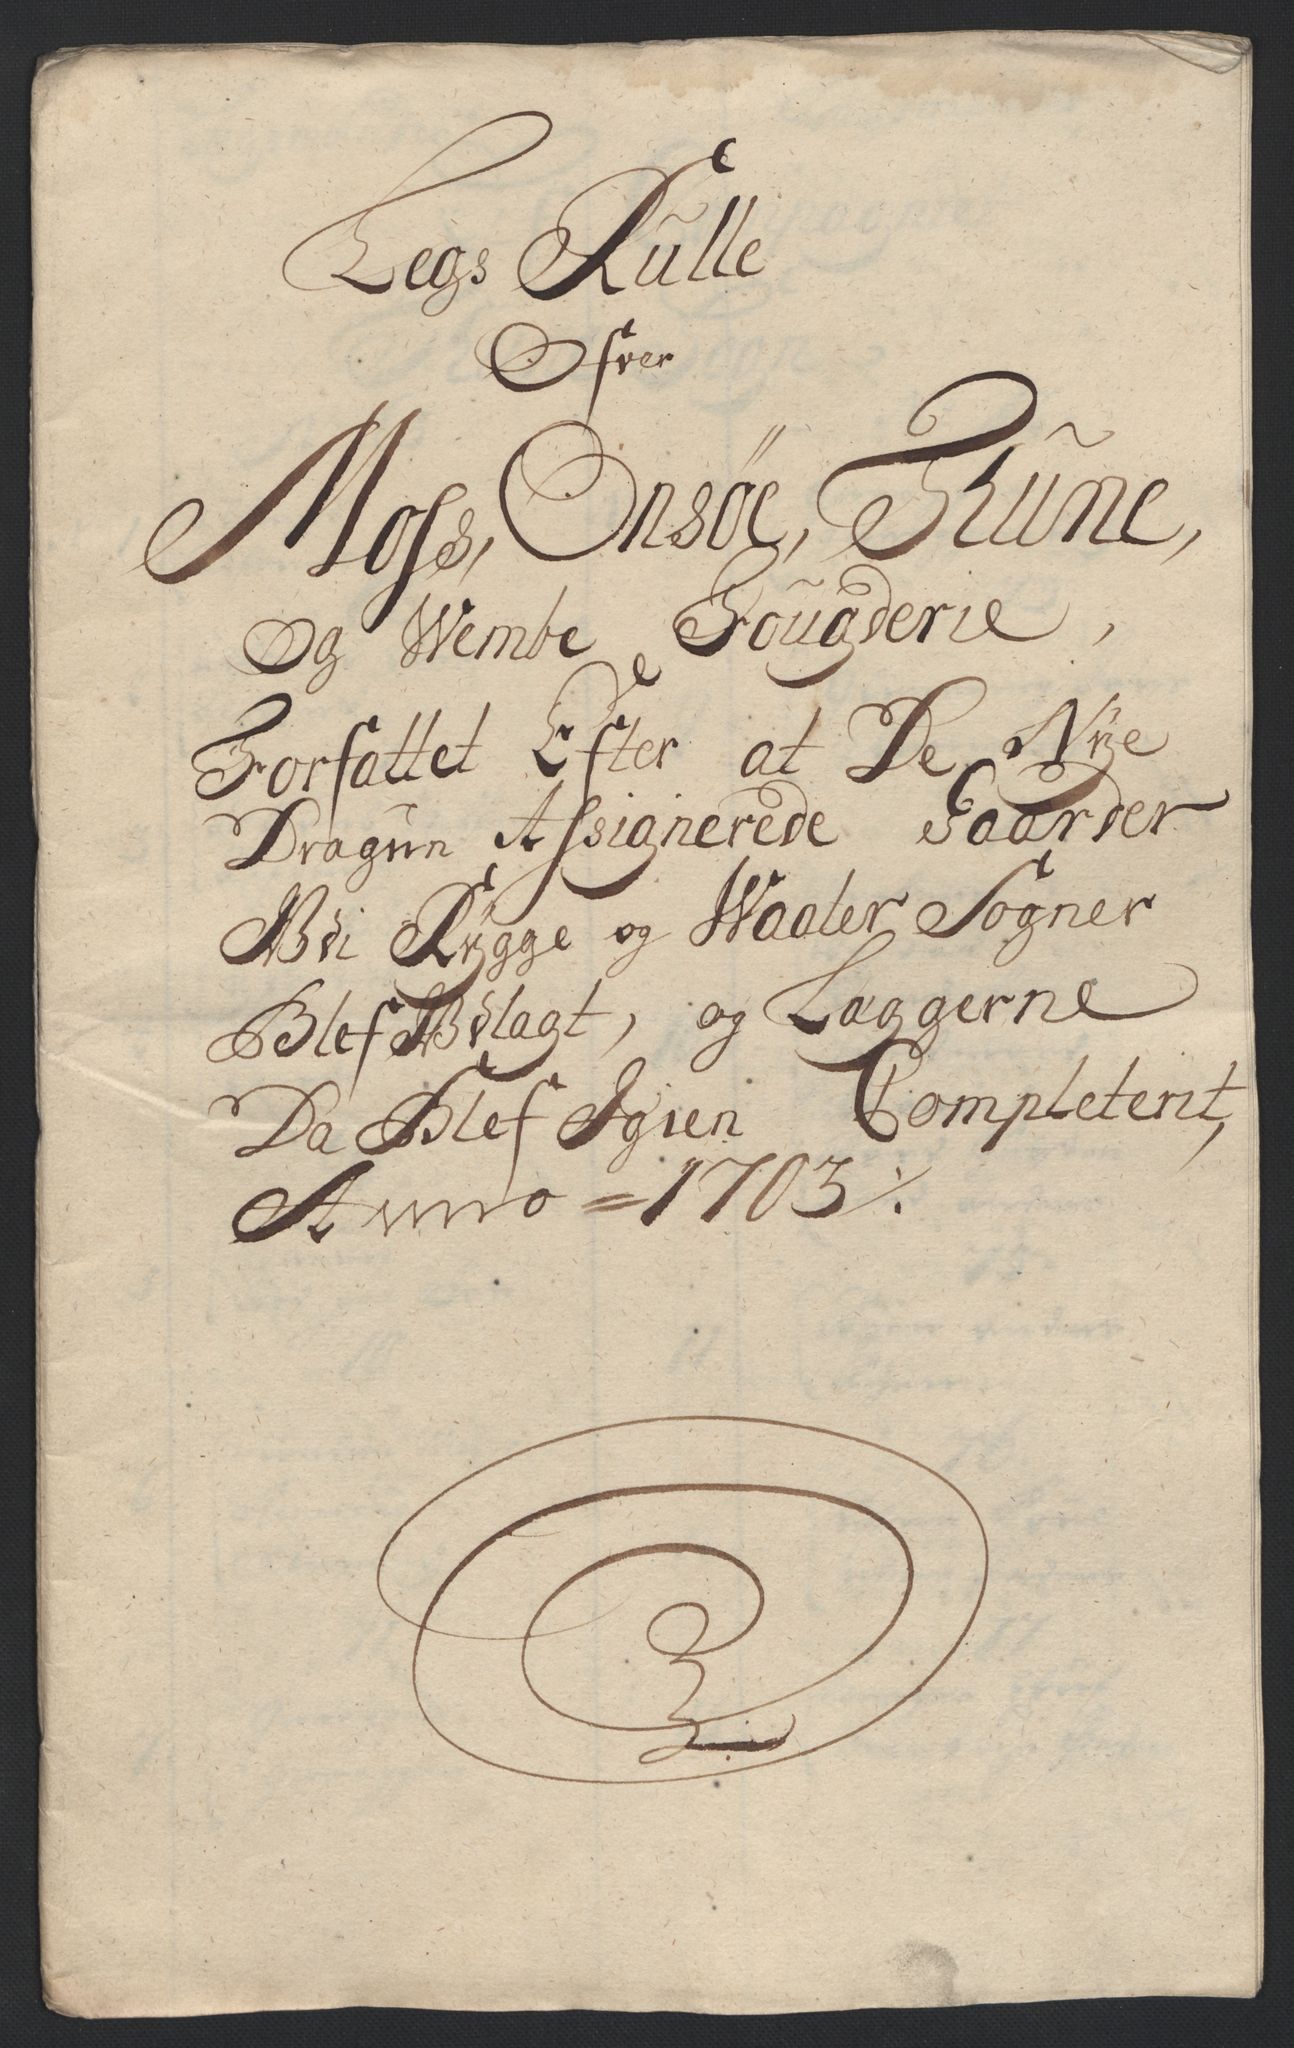 Legs Rulle
Ofver
Moss, Onsøe, Thune,
og Wembe Fougderie,
Forfattet Efter at De Nye
Dragun Assignerede Gaarder
Udi Rygge og Waaler Sogner
Blef Udlagt, og Laggerne
Da Blef Igien Completerit,
Anno = 1703 ./.